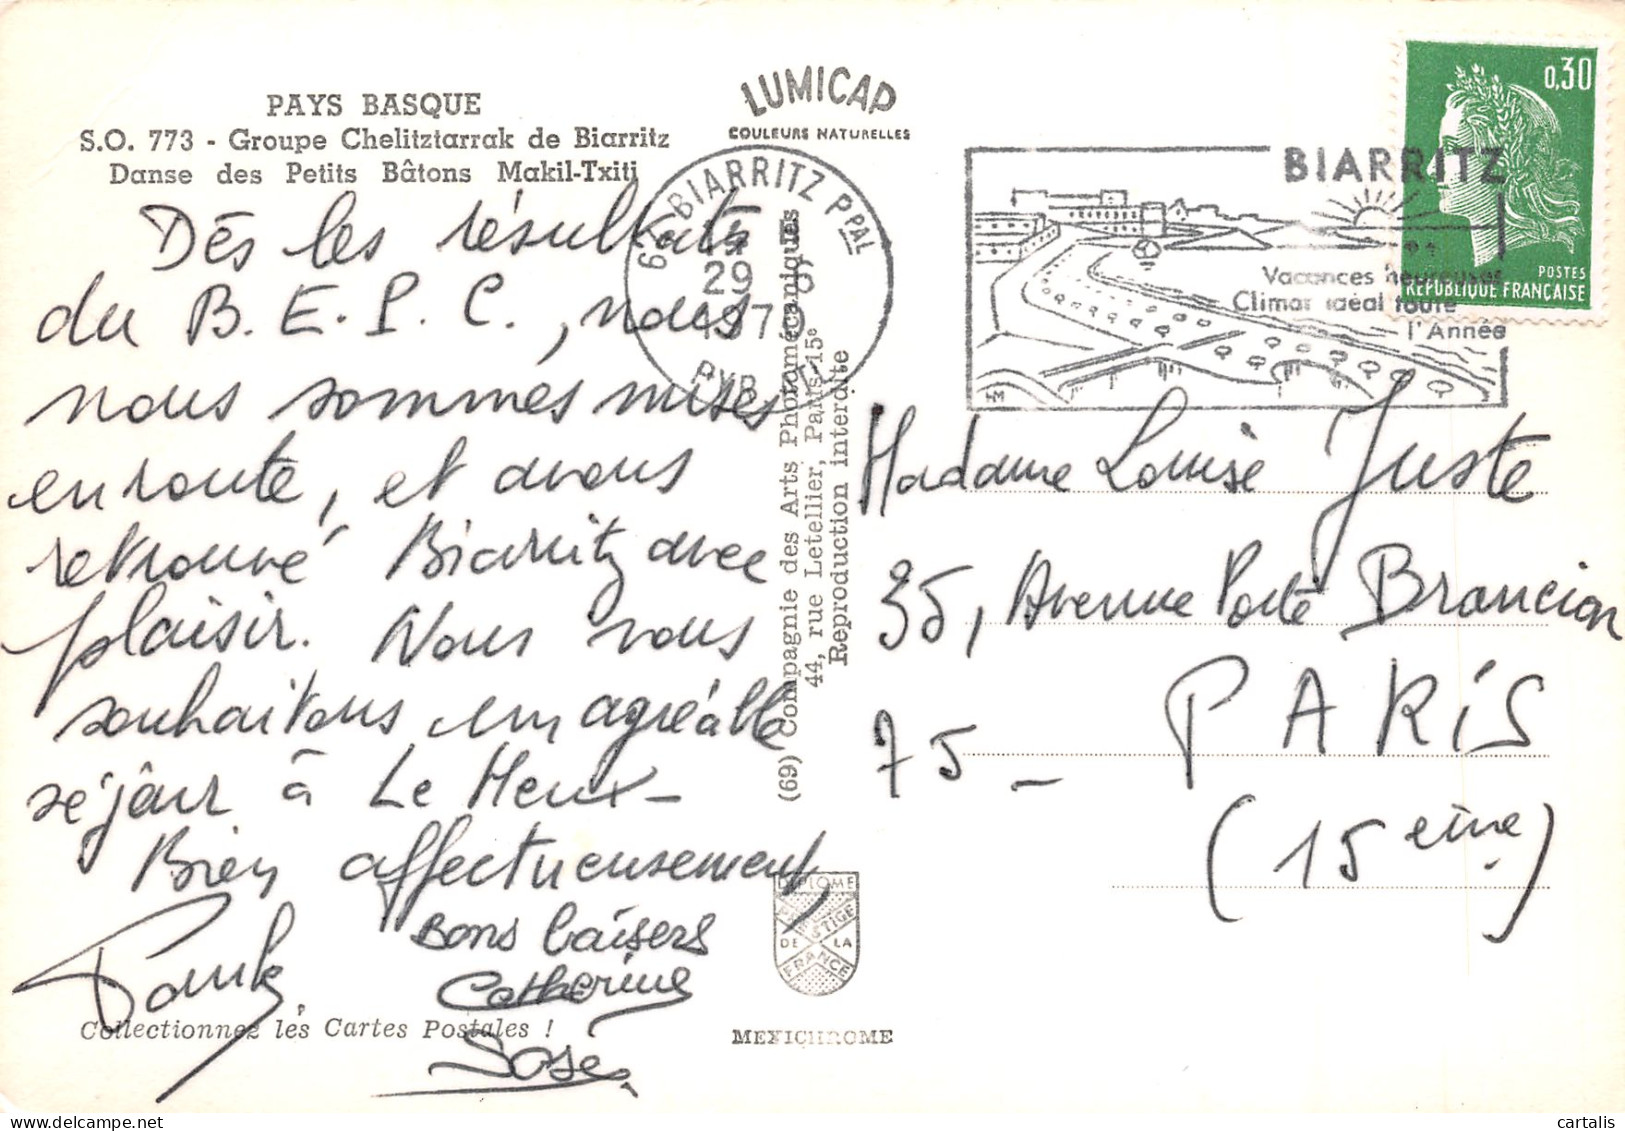 PAYS BASQUE
S.O. 773 - Groupe Chelitztarrak de Biarritz
Danse des Petits Bâtons Makil-Txiti
Dès les résultats
du B.E.P.C., nous
nous sommes mises
en route, et avons
retrouvé Biarritz avec
plaisir. Nous vous
souhaitons un agréable
séjour à Le Heux-
Bien affectueusement,
Bons baisers
Catherine
José
Collectionnez les Cartes Postales !
LUMICAP
COULEURS NATURELLES
BIARRITZ PPAL
29
1970
(69) Compagnie des Arts Photomécaniques
44, rue Letellier, Paris-15e
Reproduction interdite
DIPLOME
PRESTIGE
DE LA
FRANCE
MEXICHROME
BIARRITZ
Vacances heureuses
Climat idéal toute
l'Année
HM
0,30
POSTES
RÉPUBLIQUE FRANÇAISE
Madame Louise Juste
35, Avenue Porte Brancion
75 - PARIS
(15eme)
cartalis